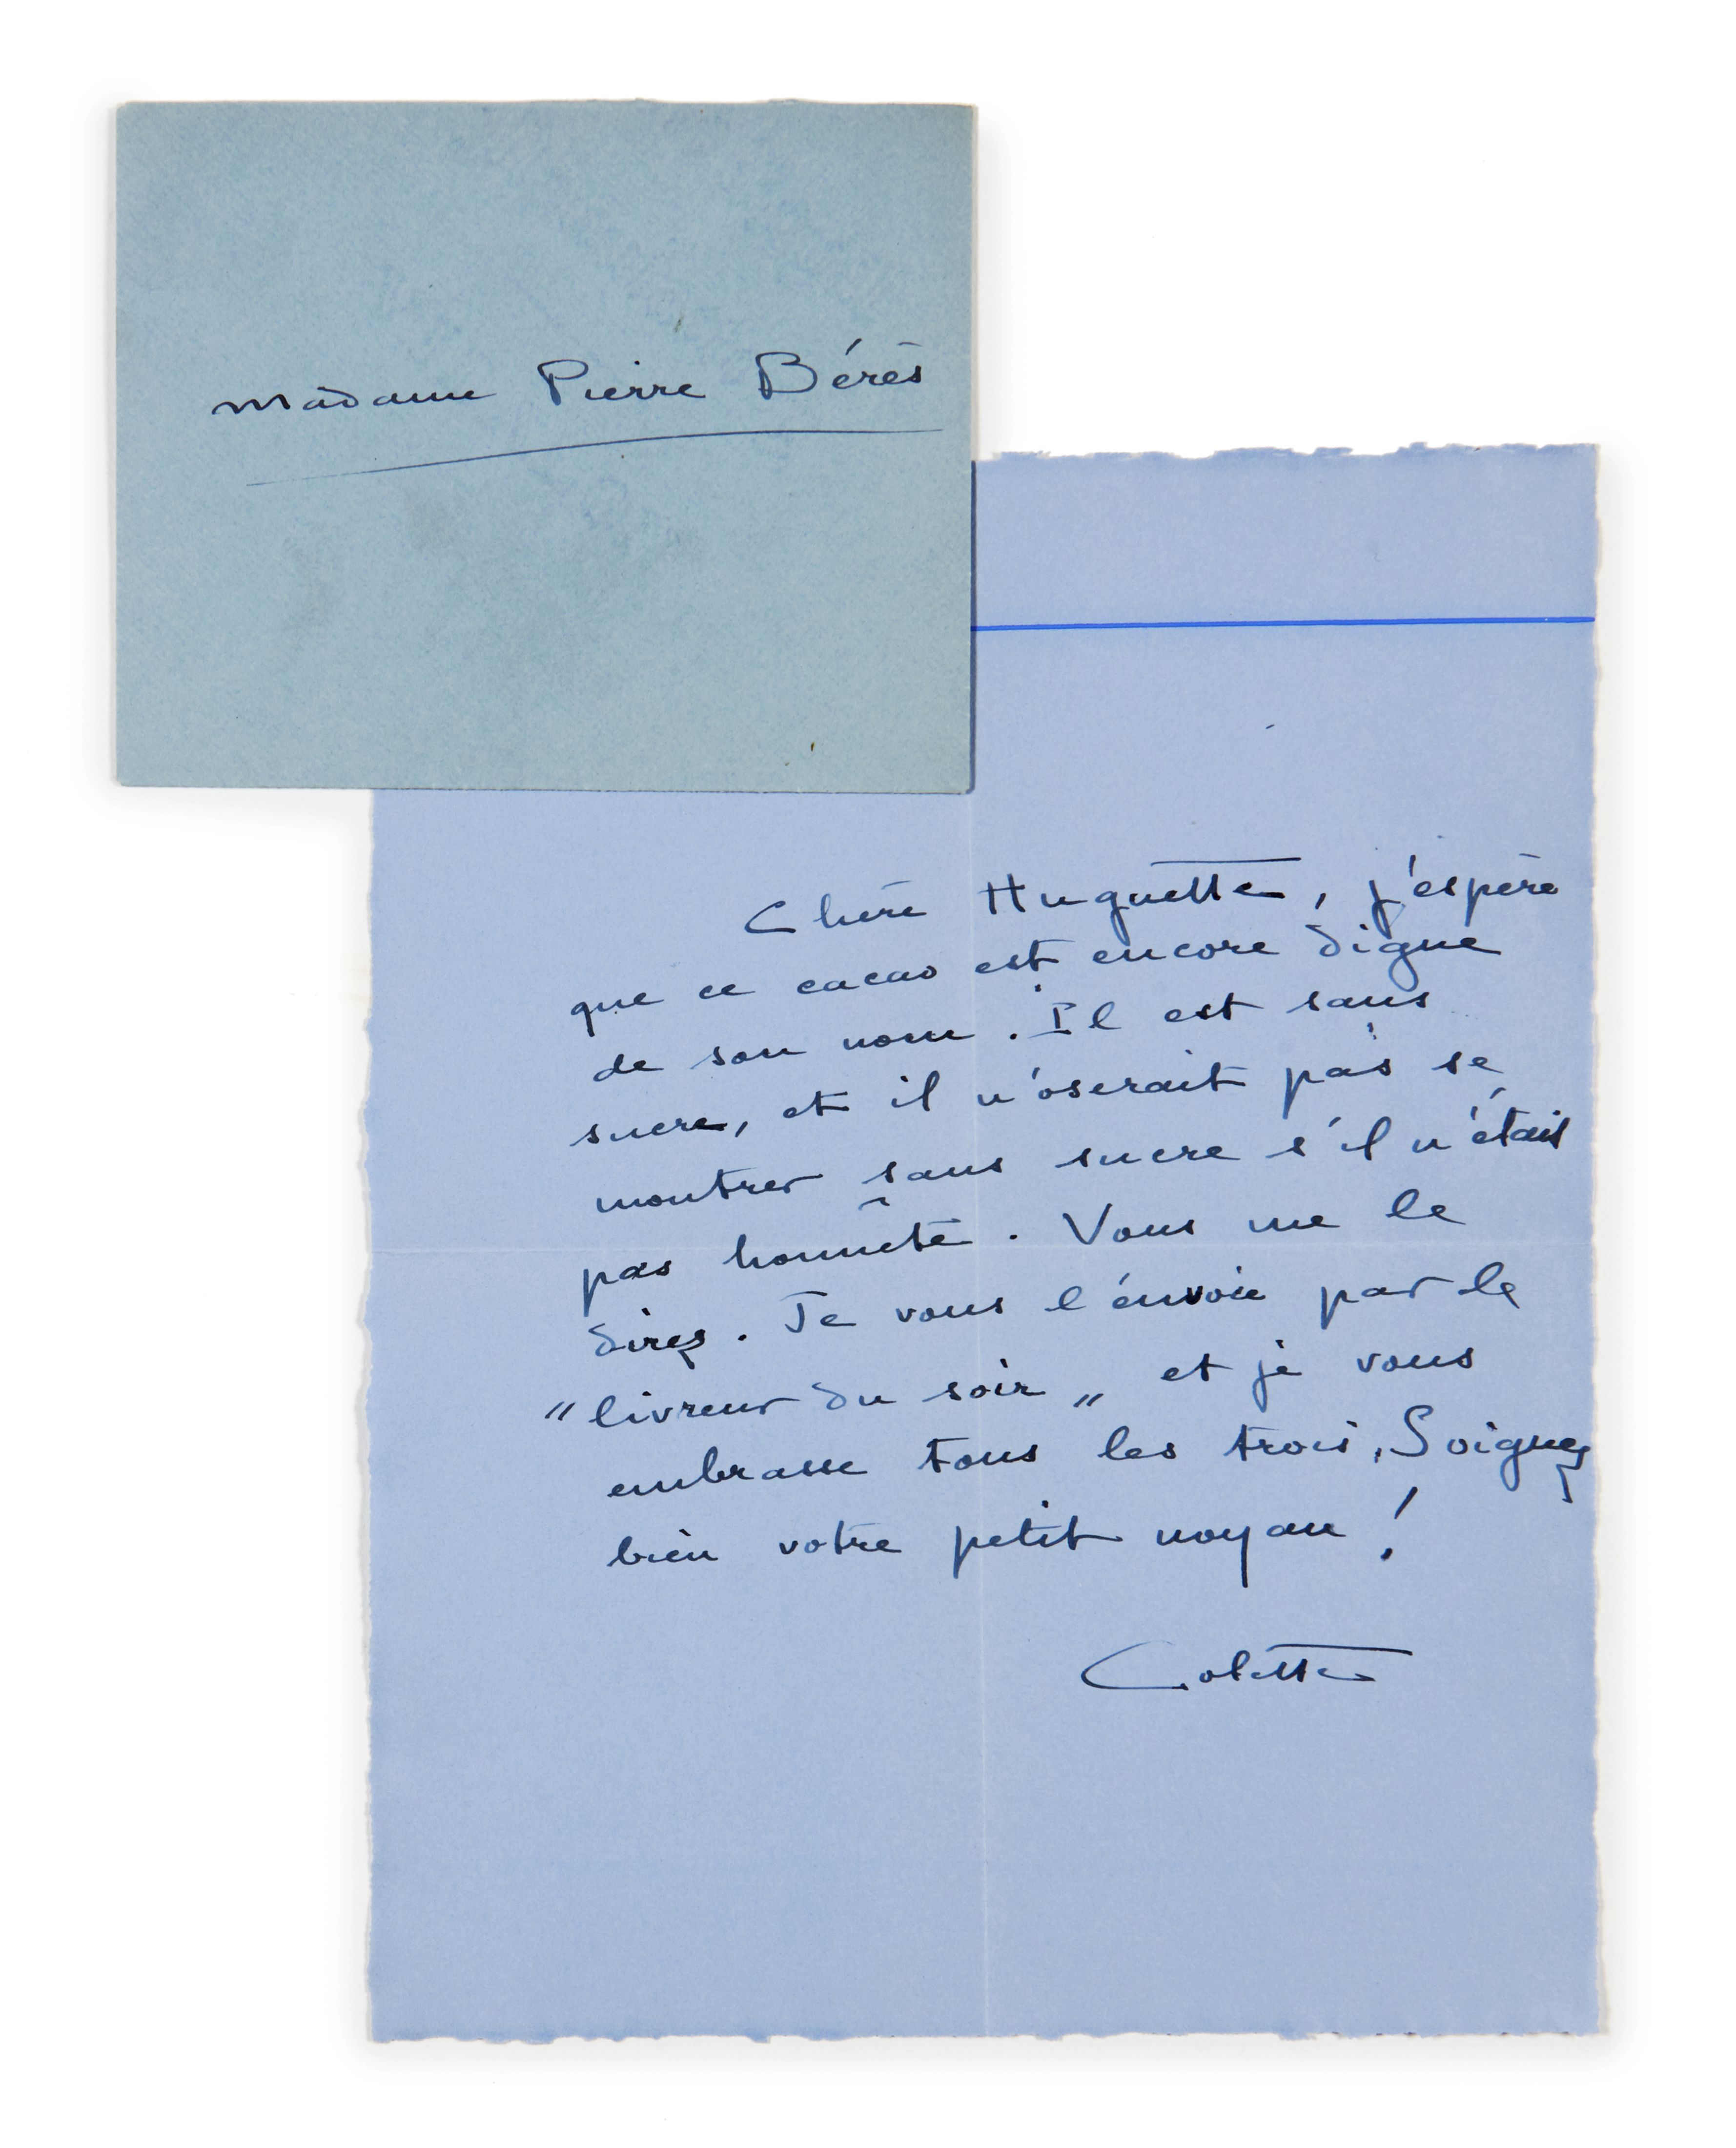 Madame Pierre Bérès
Chère Huguette, j'espère
que ce cacao est encore digne
de son nom. Il est sans
sucre, et il n'oserait pas se
montrer sans sucre s'il n'était
pas honnête. Vous me le
direz. Je vous l'envoie par le
"livreur du soir" et je vous
embrasse tous les trois. Soignez
bien votre petit noyau !
Colette